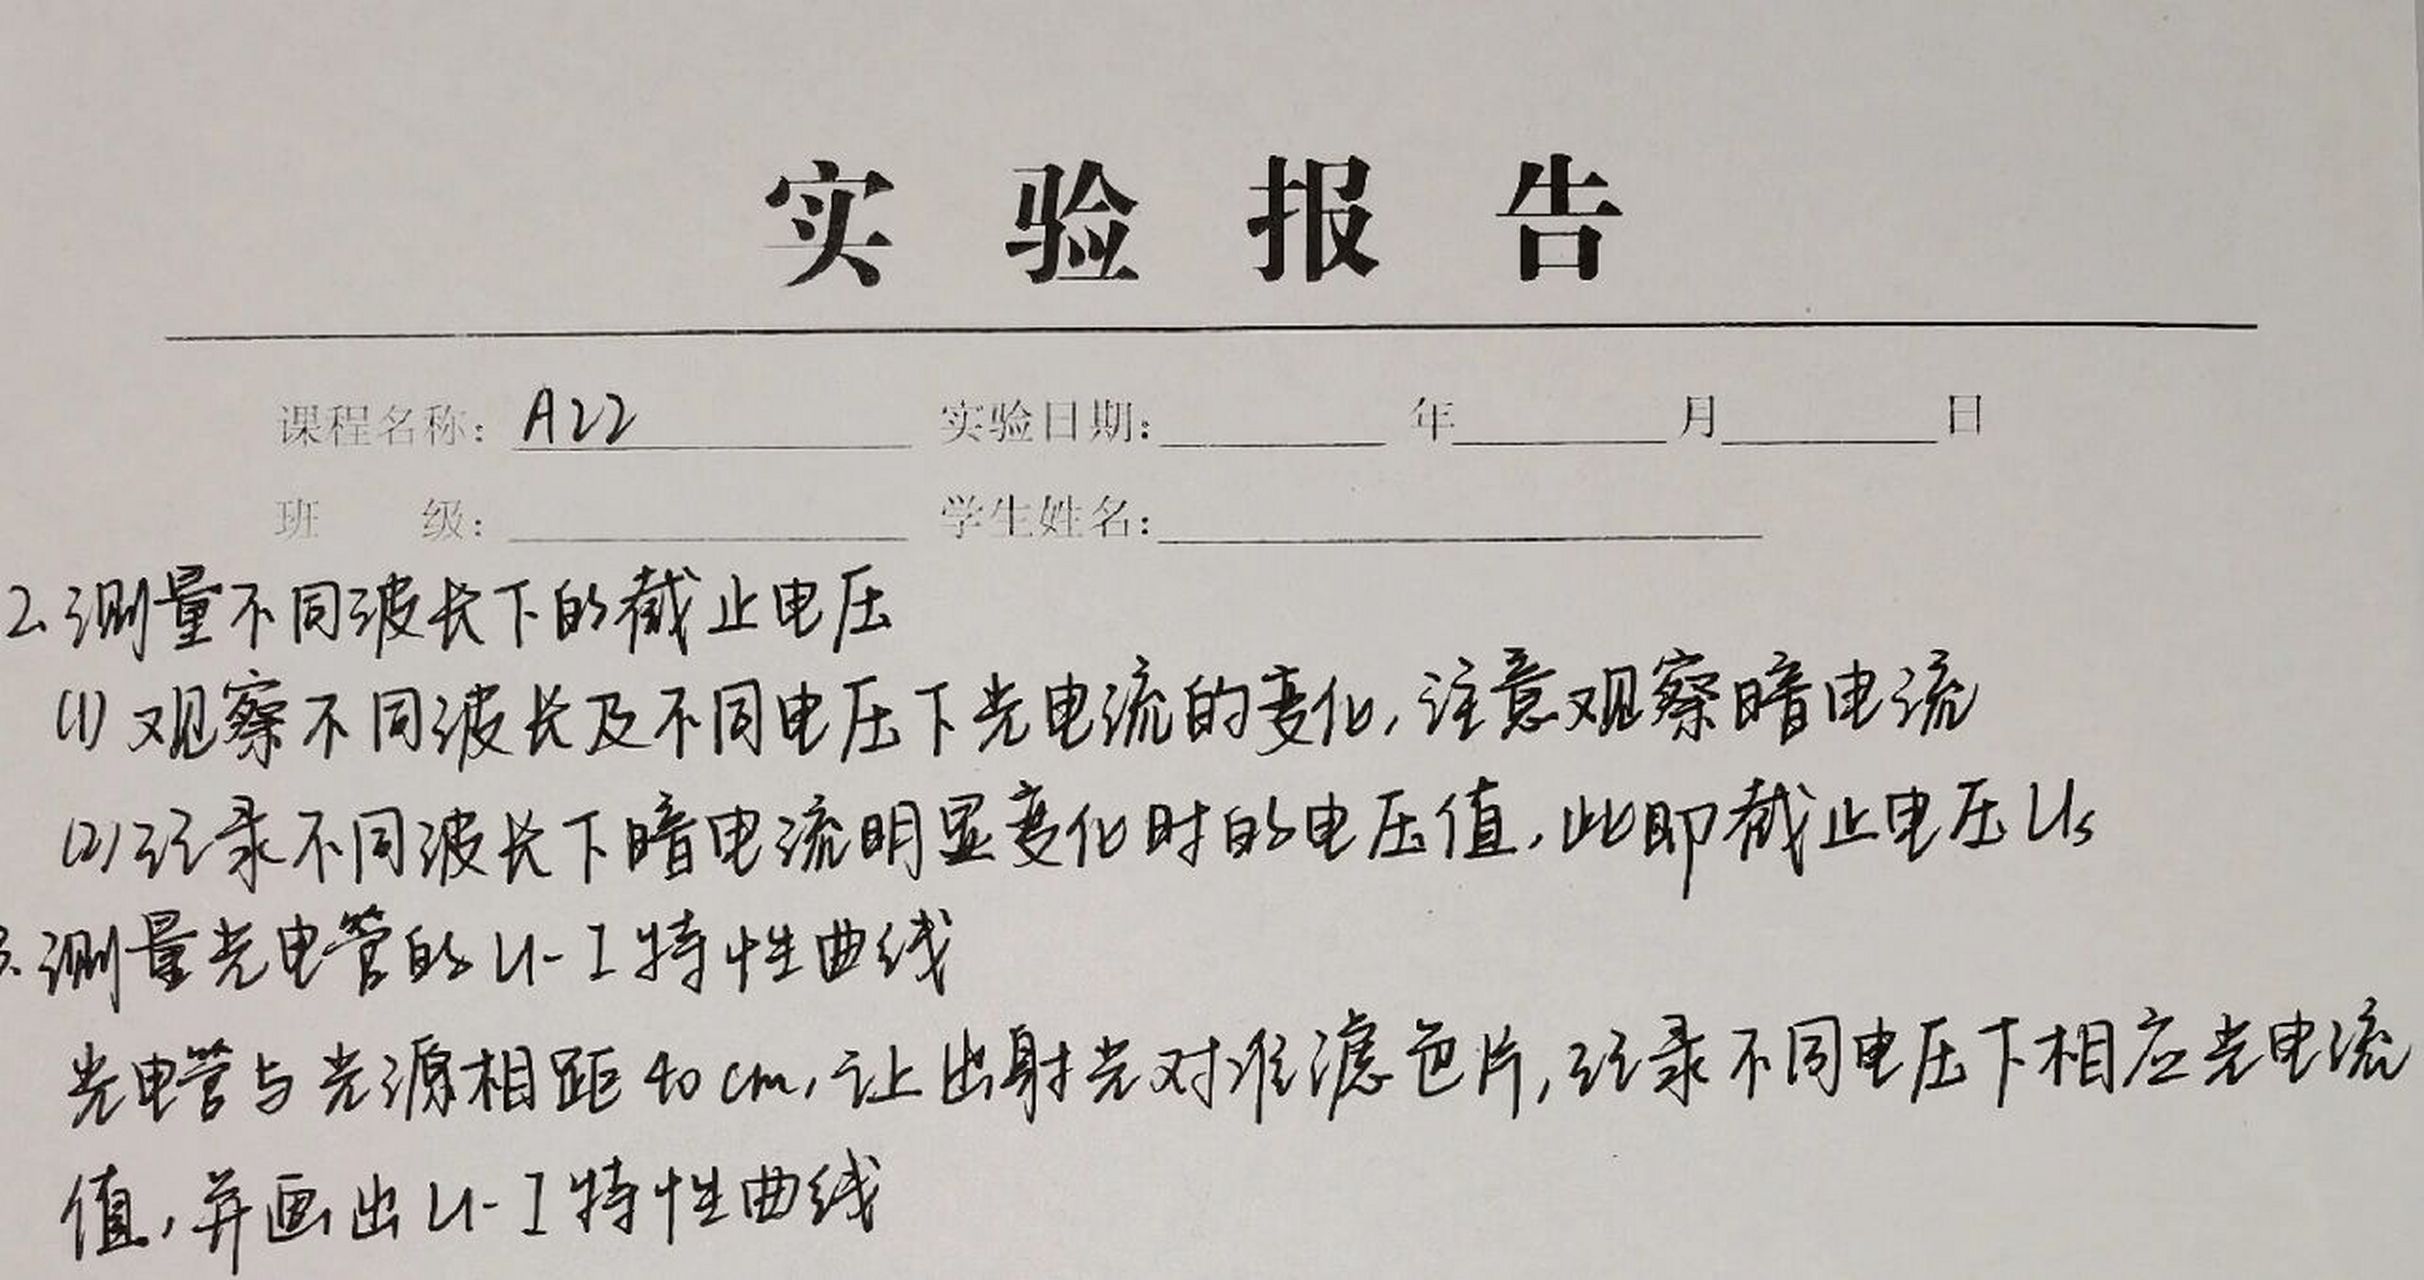 实验报告
课程名称: A22 实验日期: 年 月 日
班 级: 学生姓名:
2.测量不同波长下的截止电压
(1)观察不同波长及不同电压下光电流的变化,注意观察暗电流
(2)记录不同波长下暗电流明显变化时的电压值,此即截止电压Us
3.测量光电管的U-I特性曲线
光电管与光源相距40cm,让出射光对准滤色片,记录不同电压下相应光电流
值,并画出U-I特性曲线